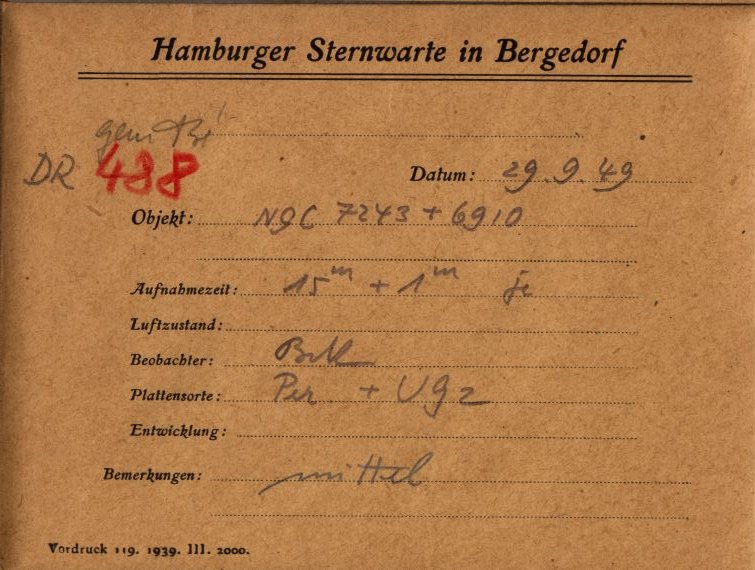 Hamburger Sternwarte in Bergedorf
DR 488
Datum: 29.9.49
Objekt: NGC 7243 + 6910
Aufnahmezeit: 15m + 1m je
Luftzustand:
Beobachter:
Plattensorte: Per. + UG2
Entwicklung:
Bemerkungen: mittel
Vordruck 119. 1939. III. 2000.